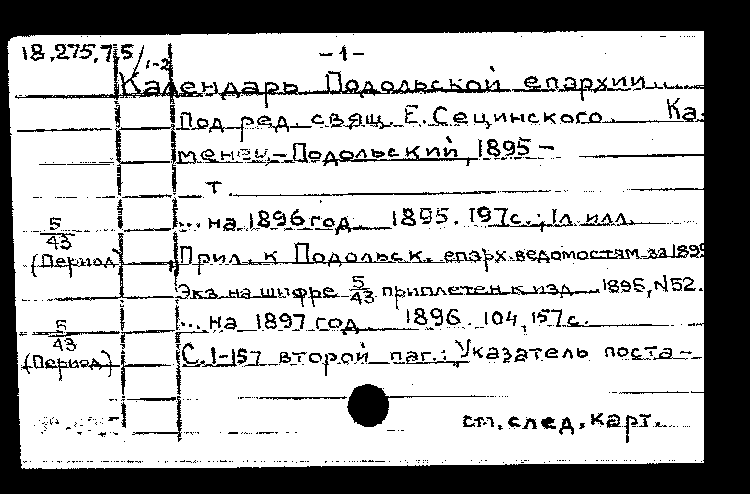 18,275,75/1-2
-1-
Календарь Подольской епархии...
Под ред. свящ. Е. Сецинского. Ка-
менец-Подольский, 1895 -
т.
5/43 (Период)
... на 1896 год. 1895. 197с.; 1л илл.
Прил. к Подольск. епарх. ведомостям за 1895
Экз. на шифре 5/43 приплетен к изд. ...1895, N52.
5/43 (Период)
... на 1897 год. 1896. 104, 157с.
С. 1-157 второй паг.: Указатель поста-
см. след. карт.